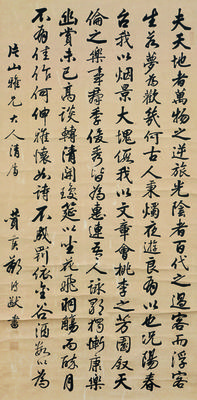 夫天地者萬物之逆旅光陰者百代之過客而浮
生若夢為歡幾何古人秉燭夜遊良有以也況陽春
召我以烟景大塊假我以文章會桃李之芳園叙天
倫之樂事羣季俊秀皆為惠連吾人詠歌獨慚康樂
幽賞未已高談轉清開瓊筵以坐花飛羽觴而醉月
不有佳作何伸雅懷如詩不成罰依金谷酒數以為
片山雅兄大人清
鄭
書